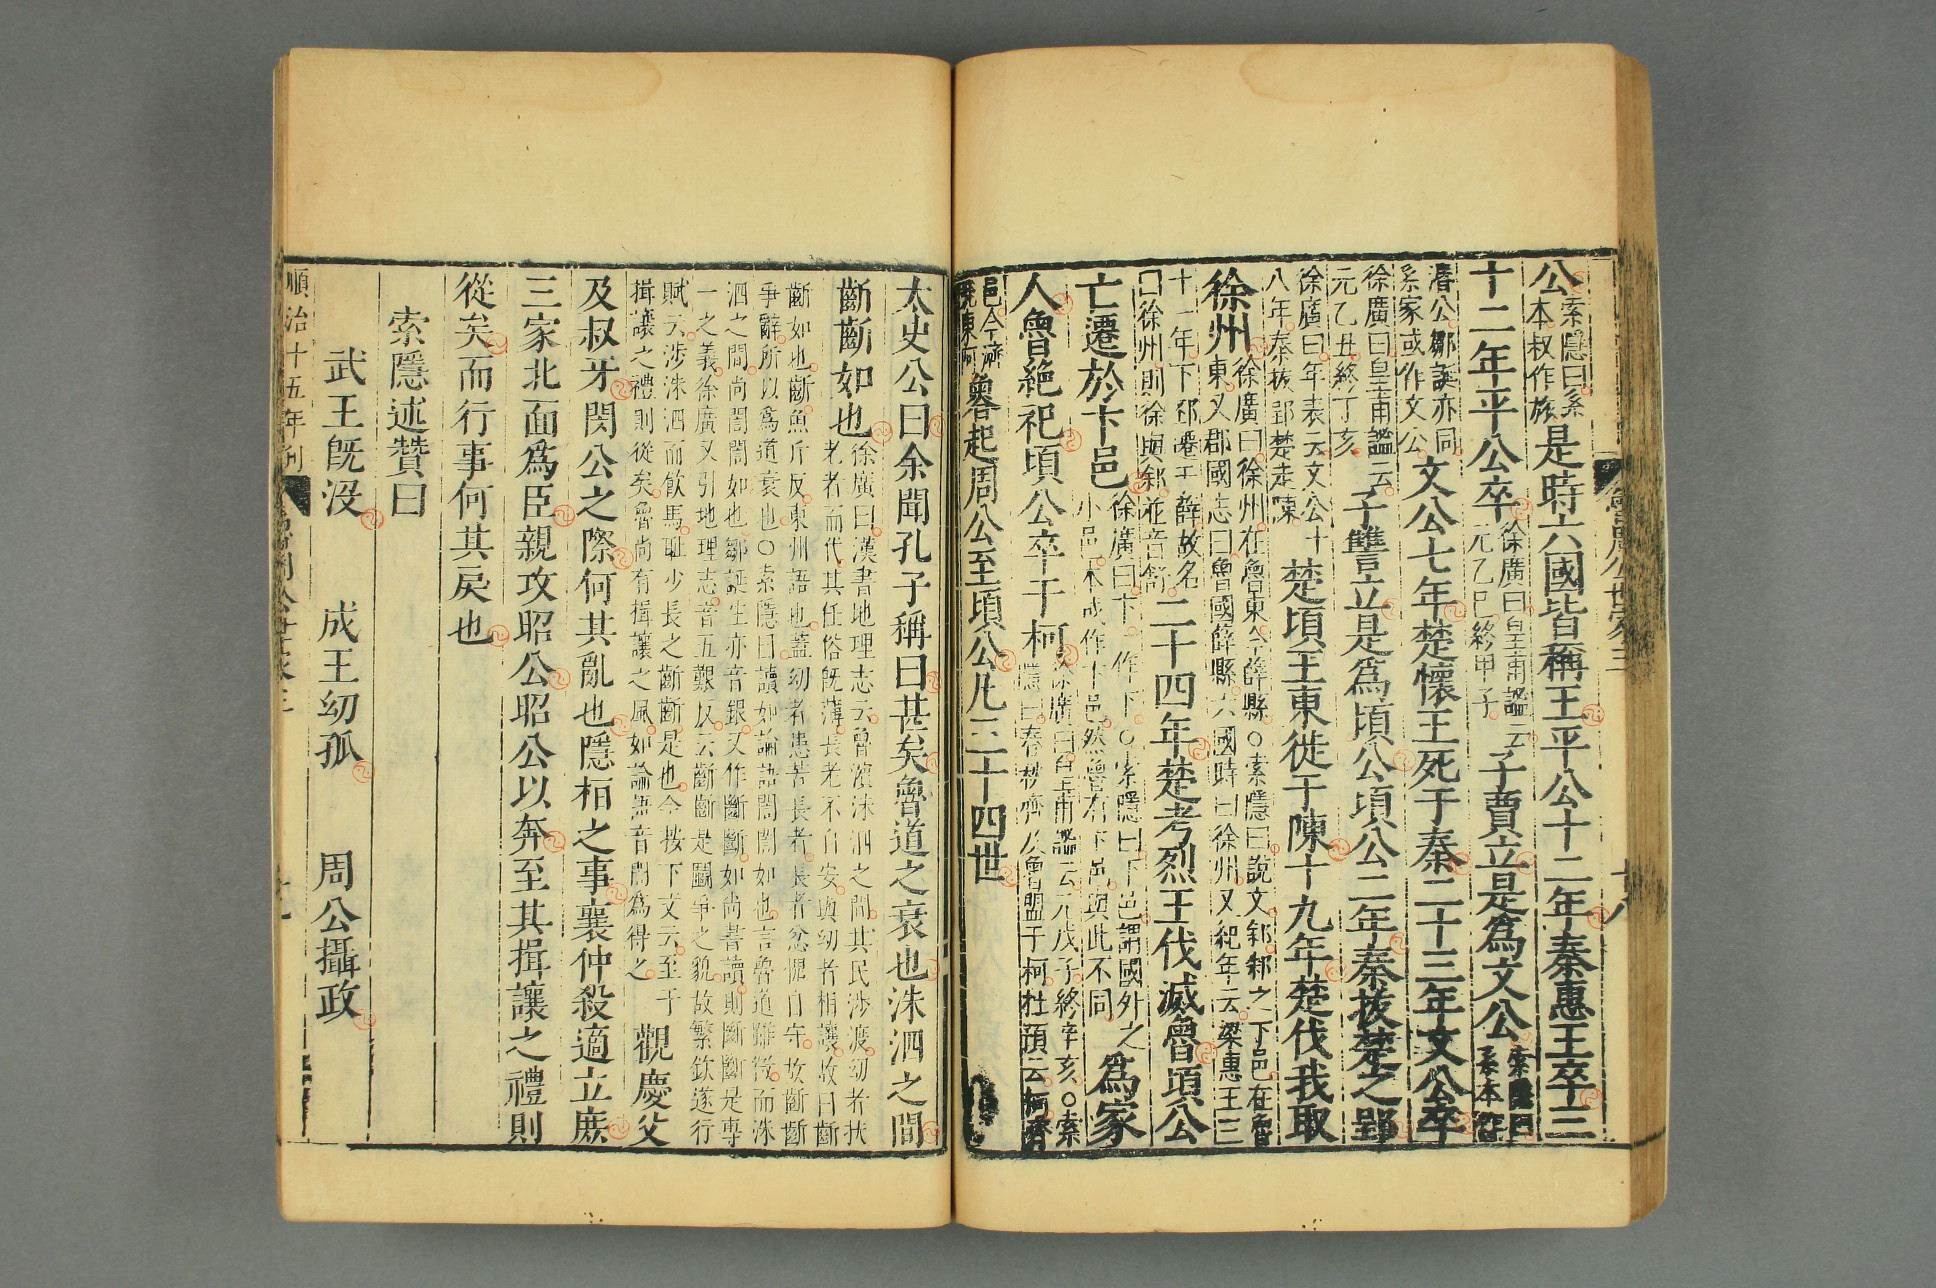 魯周公世家三
十八
公索隱曰系
本叔作旅是時六國皆稱王平公十二年秦惠王卒二
十二年平公卒徐廣曰皇甫謐云
元乙巳終甲子子賈立是爲文公索隱曰
系本作
湣公鄒誕亦同
系家或作文公文公七年楚懷王死于秦二十三年文公卒
徐廣曰皇甫謐云
元乙丑終丁亥子讐立是爲頃公頃公二年秦拔楚之郢
徐廣曰年表云文公十
八年秦拔郢楚走陳楚頃王東徙于陳十九年楚伐我取
徐州徐廣曰徐州在魯東今薛縣○索隱曰說文䣄邾之下邑在魯
東又郡國志曰魯國薛縣六國時曰徐州又紀年云梁惠王三
十一年下邳遷于薛故名
曰徐州則徐與䣄並音舒二十四年楚考烈王伐滅魯頃公
亡遷於卞邑徐廣曰卞一作下○索隱曰下邑謂國外之
小邑本或作卞邑然魯有卞邑與此不同爲家
人魯絕祀頃公卒于柯徐廣曰皇甫謐云元戊子終辛亥○索
隱曰春秋齊人魯盟于柯杜預云柯齊
邑今濟
東阿魯起周公至頃公凡三十四世
太史公曰余聞孔子稱曰甚矣魯道之衰也洙泗之間
齗齗如也徐廣曰漢書地理志云魯濱洙泗之間其民涉渡幼者扶
老者而代其任俗旣薄長老不自安與幼者相讓故曰齗
齗如也齗魚斤反東州語也蓋幼者患苦長者長者忿愧自守故齗齗
爭辭所以爲道衰也○索隱曰讀如論語誾誾如也言魯道雖微而洙
泗之間尚誾誾如也鄒誕生亦音銀又作斷斷如尚書讀則斷斷是專
一之義徐廣又引地理志音五艱反云齗齗是鬬爭之貌故繁欽遂行
賦云涉洙泗而飮馬耻少長之齗齗是也今按下文云至于
揖讓之禮則從矣魯尚有揖讓之風如論語音誾爲得之觀慶父
及叔牙閔公之際何其亂也隱桓之事襄仲殺適立庶
三家北面爲臣親攻昭公昭公以奔至其揖讓之禮則
從矣而行事何其戾也
索隱述贊曰
武王旣没 成王幼孤 周公攝政
順治十五年刊
魯周公世家三
十九